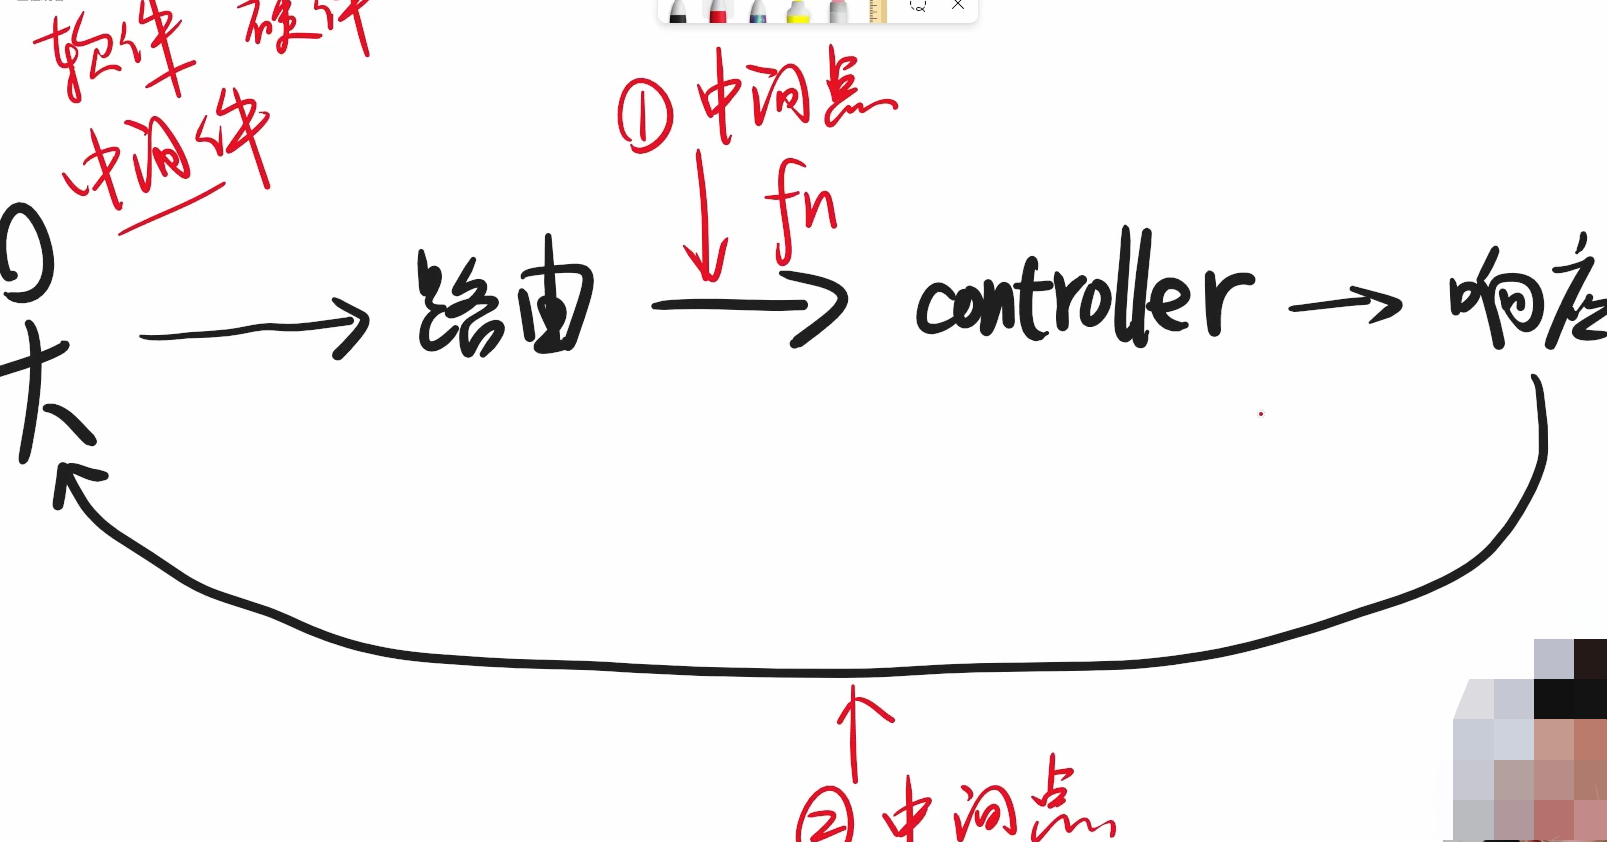 软件 硬件
中间件
① 中间点
fn
路由 controller 响应
② 中间点